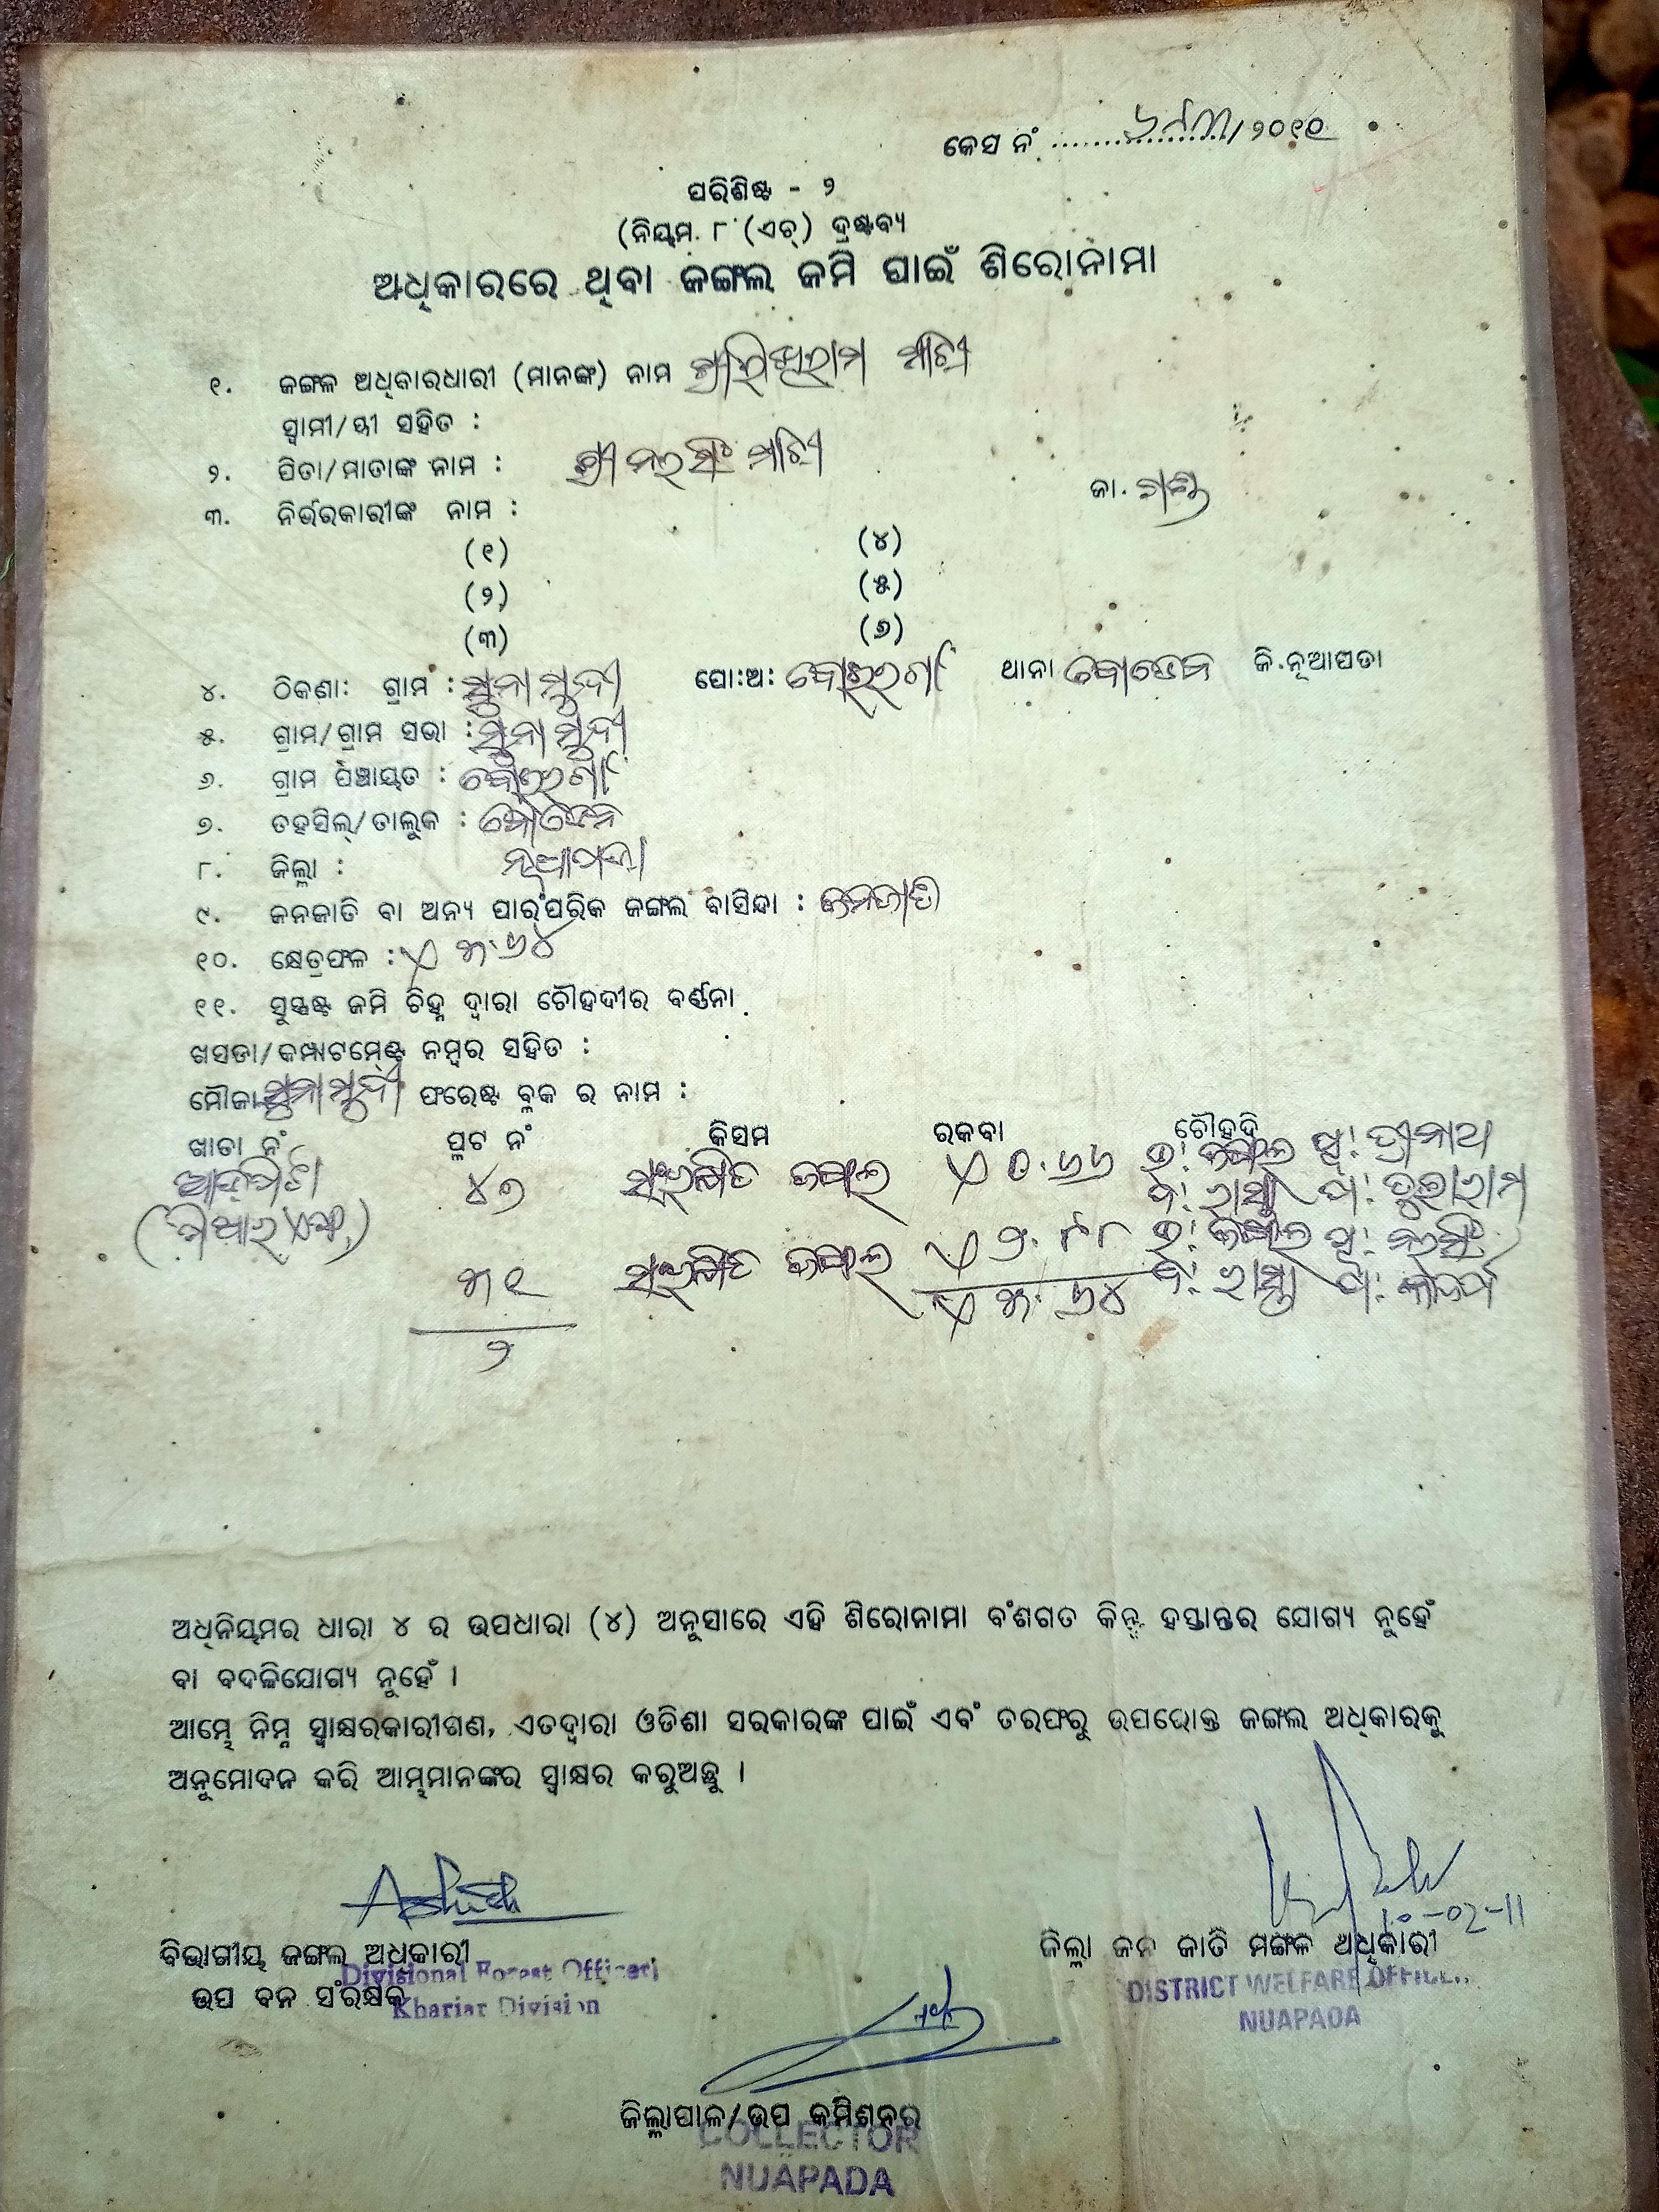 କେସ ନଂ ................/୨୦୧୧
ପରିଶିଷ୍ଟ - ୨
(ନିୟମ ୮ (ଏଚ୍) ଦ୍ରଷ୍ଟବ୍ୟ
ଅଧିକାରରେ ଥିବା ଜଙ୍ଗଲ ଜମି ପାଇଁ ଶିରୋନାମା
୧. ଜଙ୍ଗଳ ଅଧିକାରଧାରୀ (ମାନଙ୍କ) ନାମ ମାଝୀ
ସ୍ଵାମୀ/ସ୍ତ୍ରୀ ସହିତ :
୨. ପିତା/ମାତାଙ୍କ ନାମ : ଶ୍ରୀ ନରସିଂ ମାଝୀ
ଜା. ଗଣ୍ଡ
୩. ନିର୍ଭରକାରୀଙ୍କ ନାମ :
(୧) (୪)
(୨) (୫)
(୩) (୬)
୪. ଠିକଣା: ଗ୍ରାମ : ସୁନାମୁନ୍ଦୀ ପୋ:ଅ: ବୋଇରଗାଁ ଥାନା ବୋଡେନ ଜି.ନୂଆପଡା
୫. ଗ୍ରାମ/ଗ୍ରାମ ସଭା : ସୁନାମୁନ୍ଦୀ
୬. ଗ୍ରାମ ପଞ୍ଚାୟତ : ବୋଇରଗାଁ
୭. ତହସିଲ୍/ତାଲୁକ : ବୋଡେନ
୮. ଜିଲ୍ଲା : ନୂଆପଡା
୯. ଜନଜାତି ବା ଅନ୍ୟ ପାରଂପରିକ ଜଙ୍ଗଲ ବାସିନ୍ଦା : ଜନଜାତି
୧୦. କ୍ଷେତ୍ରଫଳ : ଏ ୩.୬୪
୧୧. ସୁସ୍ପଷ୍ଟ ଜମି ଚିହ୍ନ ଦ୍ଵାରା ଚୌହଦୀର ବର୍ଣ୍ଣନା
ଖସଡା/କମ୍ପାଟମେଣ୍ଟ ନମ୍ବର ସହିତ :
ମୌଜା ସୁନାମୁନ୍ଦୀ ଫରେଷ୍ଟ ବ୍ଲକ ର ନାମ :
ଖାତା ନଂ ପ୍ଳଟ ନଂ କିସମ ରକବା ଚୌହଦି
୪୭ ସଂରକ୍ଷିତ ଜଙ୍ଗଲ ଏ ୦.୬୬ ଉ: ଜଙ୍ଗଲ ପୂ: ତ୍ରୀନାଥ
ଦ: ରାସ୍ତା ପ: ତୁଲାରାମ
୩୧ ସଂରକ୍ଷିତ ଜଙ୍ଗଲ ଏ ୨.୯୮ ଉ: ଜଙ୍ଗଲ ପୂ: ନରସିଂ
୨ ଏ ୩.୬୪ ଦ: ରାସ୍ତା ପ:
ଅଧିନିୟମର ଧାରା ୪ ର ଉପଧାରା (୪) ଅନୁସାରେ ଏହି ଶିରୋନାମା ବଂଶଗତ କିନ୍ତୁ ହସ୍ତାନ୍ତର ଯୋଗ୍ୟ ନୁହେଁ
ବା ବଦଳିଯୋଗ୍ୟ ନୁହେଁ ।
ଆମ୍ଭେ ନିମ୍ନ ସ୍ଵାକ୍ଷରକାରୀଗଣ, ଏତଦ୍ଵାରା ଓଡିଶା ସରକାରଙ୍କ ପାଇଁ ଏବଂ ତରଫରୁ ଉପରୋକ୍ତ ଜଙ୍ଗଲ ଅଧିକାରକୁ
ଅନୁମୋଦନ କରି ଆମ୍ଭମାନଙ୍କର ସ୍ଵାକ୍ଷର କରୁଅଛୁ ।
10-02-11
ବିଭାଗୀୟ ଜଙ୍ଗଲ ଅଧିକାରୀ ଜିଲ୍ଲା ଜନ ଜାତି ମଙ୍ଗଳ ଅଧିକାରୀ
Divisional Forest Officer DISTRICT WELFARE OFFICER
ଉପ ବନ ସଂରକ୍ଷକ
Khariar Division NUAPADA
ଜିଲ୍ଲାପାଳ/ଉପ କମିଶନର
COLLECTOR
NUAPADA